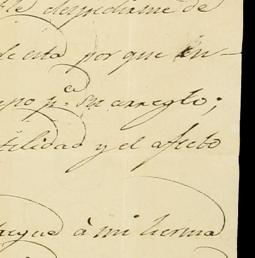 despedirme de
de esta por que en-
po p.ª su arreglo;
tilidad y el afecto
tregue à mi herma